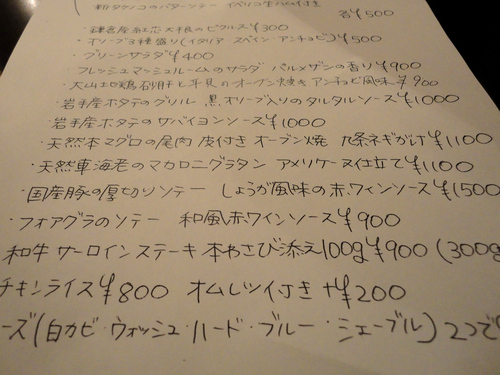 新タケノコのバターソテー イベリコ生ハム付き
各¥500
・鎌倉産紅芯大根のピクルス¥300
・オリーブ3種盛り(イタリア スペイン アンチョビ)¥500
・グリーンサラダ¥400
・フレッシュマッシュルームのサラダ パルメザンの香り¥900
・大山地鶏砂肝と平貝のオーブン焼き アンチョビ風味¥900
・岩手産ホタテのグリル 黒オリーブ入りのタルタルソース¥1000
・岩手産ホタテのサバイヨンソース¥1000
・天然本マグロの尾肉 皮付きオーブン焼 九条ネギがけ¥1100
・天然車海老のマカロニグラタン アメリケーヌ仕立て¥1100
・国産豚の厚切りソテー しょうが風味の赤ワインソース¥1500
・フォアグラのソテー 和風赤ワインソース¥900
和牛サーロインステーキ 本わさび添え100g¥900(300g
チキンライス¥800 オムレツ付き+¥200
ーズ(白カビ・ウォッシュ・ハード・ブルー・シェーブル)2つで